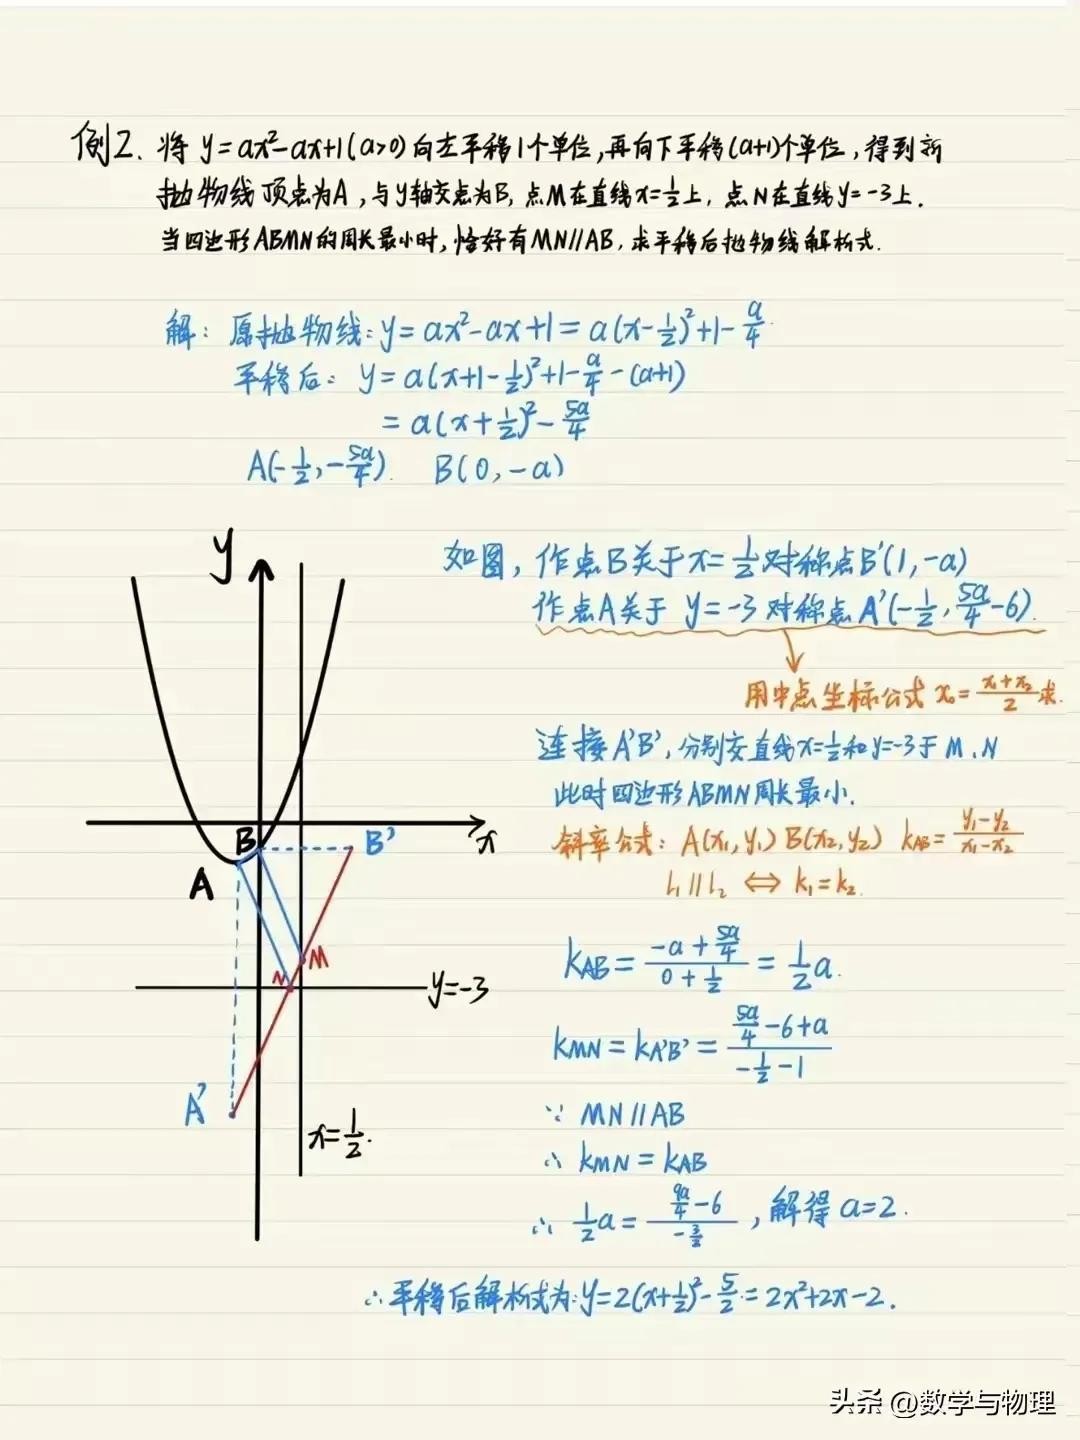 例2. 将 y=ax²-ax+1(a>0)向左平移1个单位,再向下平移(a+1)个单位,得到新
抛物线顶点为A,与y轴交点为B,点M在直线x=1/2上,点N在直线y=-3上.
当四边形ABMN的周长最小时,恰好有MN//AB,求平移后抛物线解析式.
解: 原抛物线: y=ax²-ax+1=a(x-1/2)²+1-a/4.
平移后: y=a(x+1-1/2)²+1-a/4-(a+1)
=a(x+1/2)²-5a/4
A(-1/2,-5a/4). B(0,-a)
如图,作点B关于x=1/2对称点B'(1,-a)
作点A关于 y=-3对称点A'(-1/2,5a/4-6).
用中点坐标公式 x₀=(x₁+x₂)/2求.
连接A'B',分别交直线x=1/2和y=-3于M、N
此时四边形ABMN周长最小.
斜率公式: A(x₁,y₁) B(x₂,y₂) kAB=(y₁-y₂)/(x₁-x₂)
l₁//l₂ ⇔ k₁=k₂.
kAB=(-a+5a/4)/(0+1/2)=1/2a.
kMN=kA'B'=(5a/4-6+a)/(-1/2-1)
∵ MN//AB
∴ kMN=kAB
∴ 1/2a=(9a/4-6)/(-3/2),解得a=2.
∴平移后解析式为:y=2(x+1/2)²-5/2=2x²+2x-2.
y
x
B
B'
A
M
N
y=-3
A'
x=1/2.
头条 @数学与物理